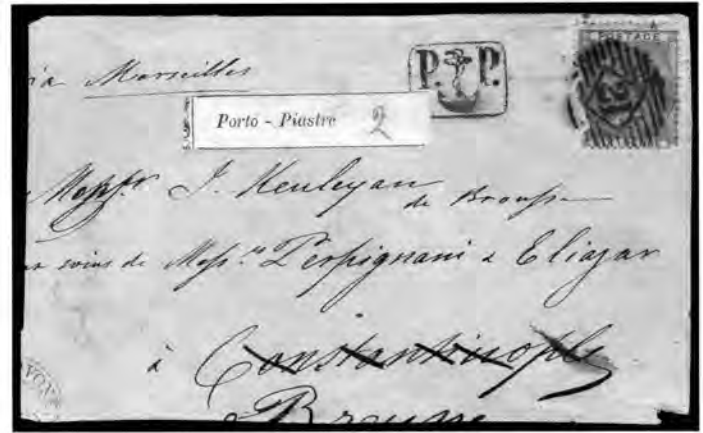 POSTAGE
P. P.
via Marseilles
Porto - Piastre 2
Mess.rs J. Keuleyan
de Brousse
aux soins de Mess.rs Perpignani & Eliazar
à Constantinople
Brousse